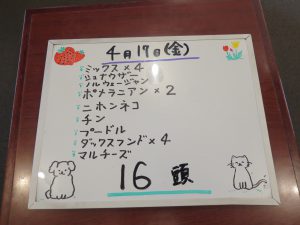 4月19日(金)
ミックス×4
シュナウザー
ノルウェージャン
ポメラニアン×2
ニホンネコ
チン
プードル
ダックスフンド×4
マルチーズ
16頭